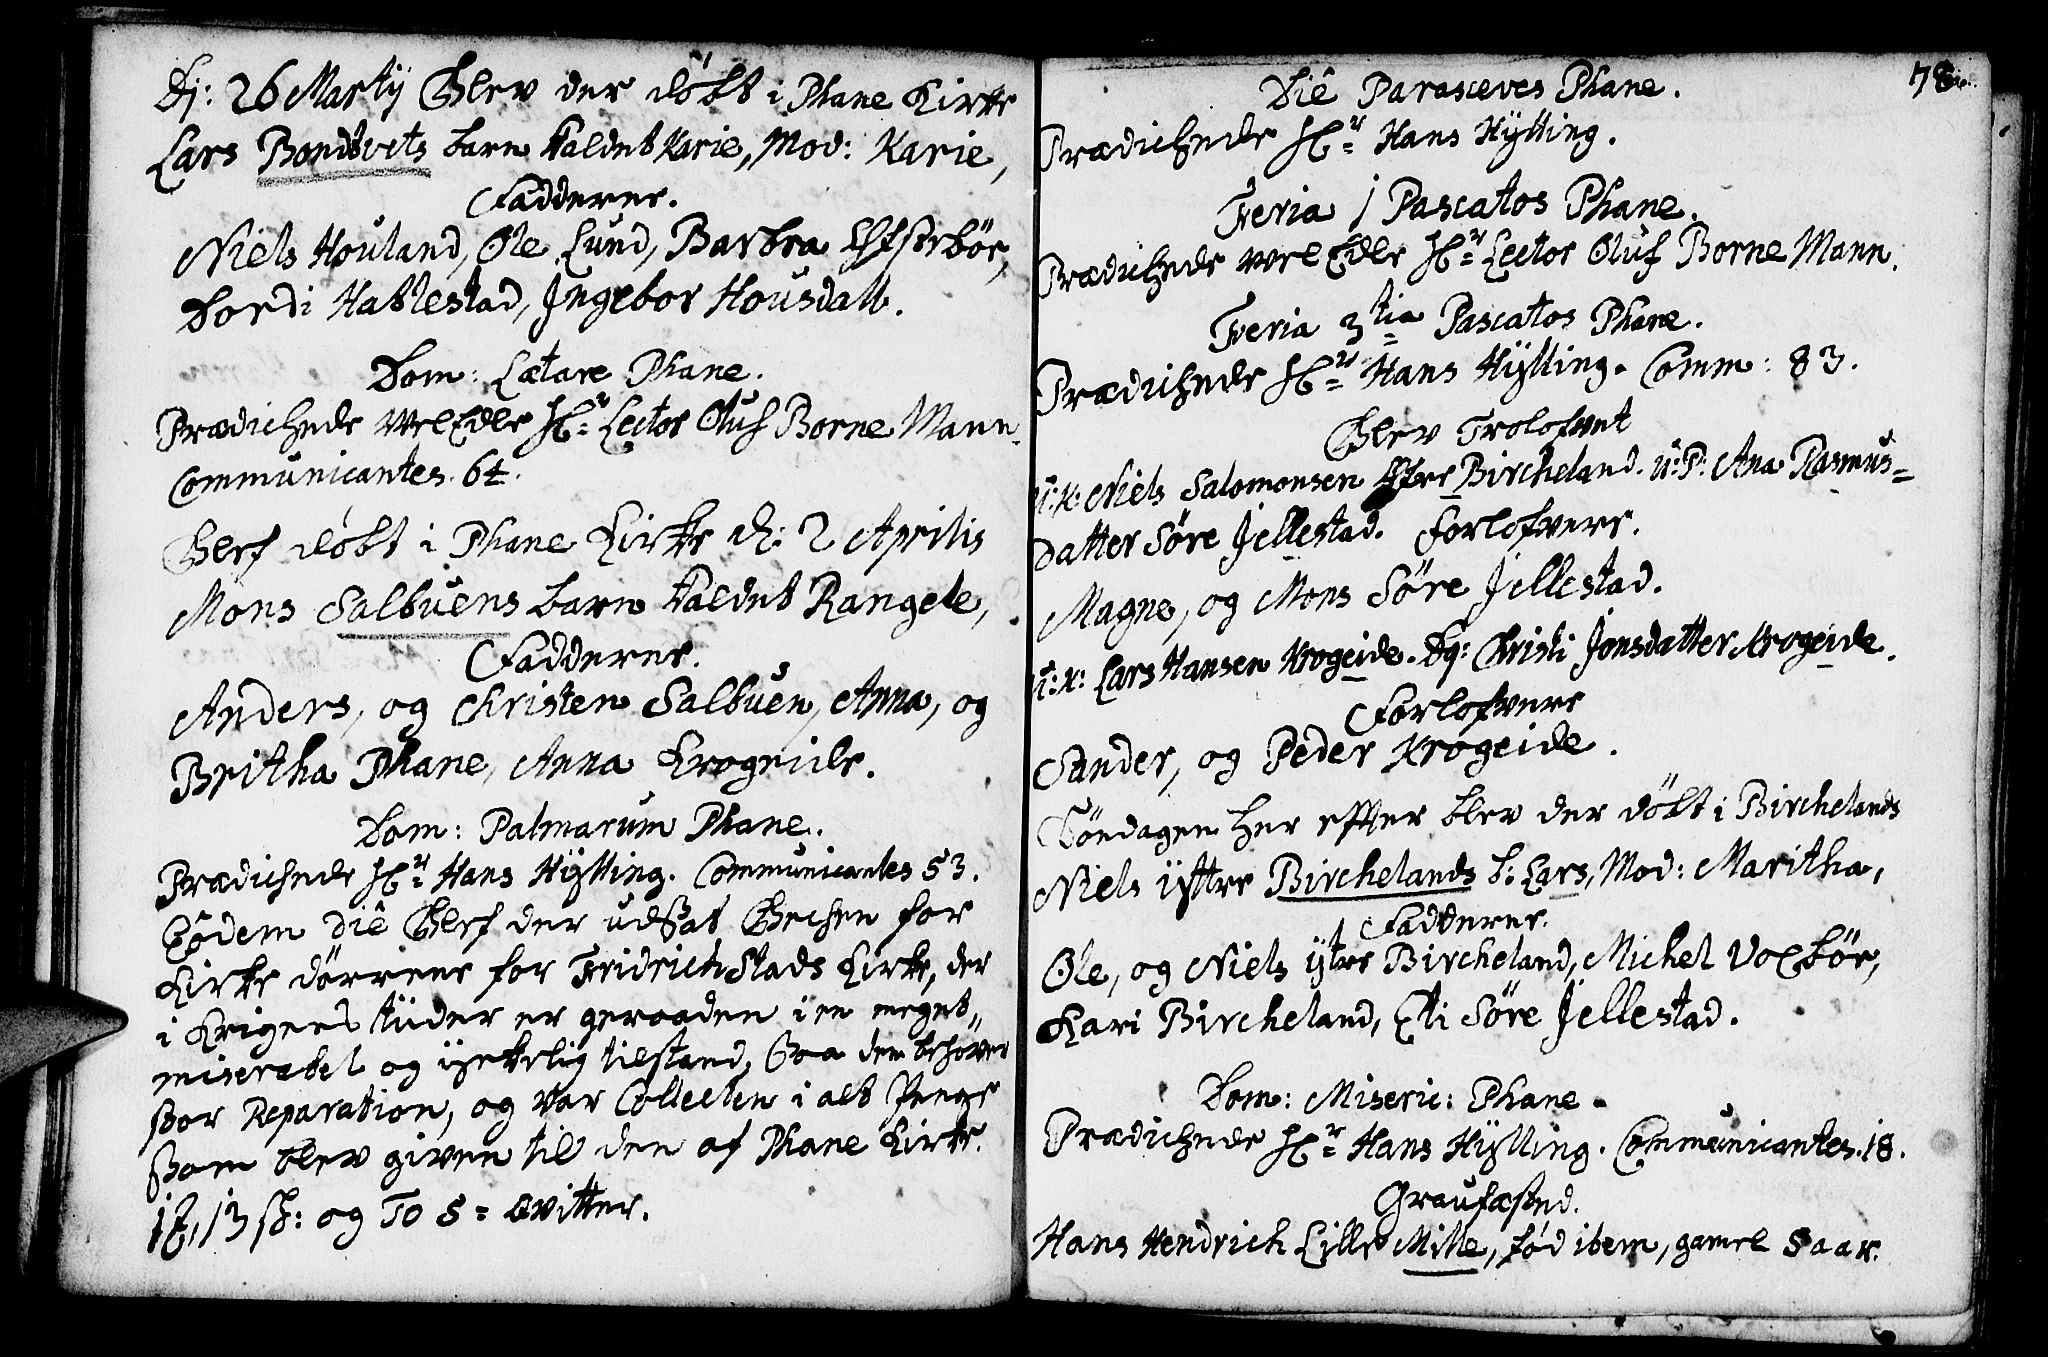 Dj: 26 Martij Blev der döbt i Phane Kirke
Lars Bondtvets barn kaldet Karie, Mod: Karie,
Fadderne.
Niels Houland, Ole Lund, Barbra Østerbör,
Dordi Hatlestad, Jngebor Housdall.
Dom: Lætare Phane.
Prædichede Wel Edle Hr: Lector Oluf Borne Mann.
Communicantes. 64.
Blef döbt i Phane Kirke d: 2 Aprilis
Mons Salbuens barn kaldet Rangele,
Fadderne.
Anders, og Christen Salbuen, Anna, og
Britha Phane, Anna Krogeide.
Dom: Palmarum Phane.
Prædichede Hr: Hans Hÿtting. Communicantes 53.
Eodem Diê Blef der udsat Bechen for
Kirke dörrene for Fridrich Stads Kirke, der
i Krigens tüder er geraaden i en meget
miserabel og ÿnkelig tilstand, saa den behöver
stor Reparation, og var Collecten i alt Penge
som blev given til den af Phane Kirke.
13 sk: og To S= qvitter.
78.
Diê Parasceves Phane.
Prædichede Hr: Hans Hÿtting.
Feria 1 Pascatos Phane.
Prædichede Wel Edle Hr: Lector Oluf Borne Mann.
Feria 3tia Pascatos Phane.
Prædichede Hr: Hans Hÿtting. Comm: 83.
Blev Trolofvet
U: K: Niels Salomonsen Øfre Bircheland. U: P: Ana Rasmus-
datter Söre Jellestad. Forlofvere.
Magne, og Mons Söre Jellestad.
U: K: Lars Hansen Krogeide. Dq: Christi Jonsdatter Krogeide.
Forlofvere
Sander, og Peder Krogeide.
Söndagen her effter blev der döbt i Birchelands
Niels ÿttre Birchelands b: Lars, Mod: Maritha,
Fadderne.
Ole, og Niels ÿtre Bircheland, Michel Voxbör,
Kari Bircheland, Eli Söre Jellestad.
Dom: Miseric: Phane.
Prædichede Hr: Hans Hÿtting. Communicantes. 18.
Graufæsted.
Hans Hendrich Lille Mille, föd ibem, gamel 5 aar.